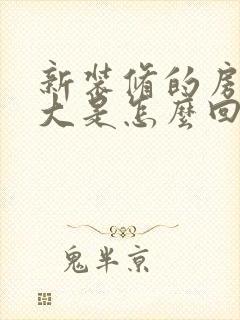 新装修的房
大是怎麼回
鬼半京